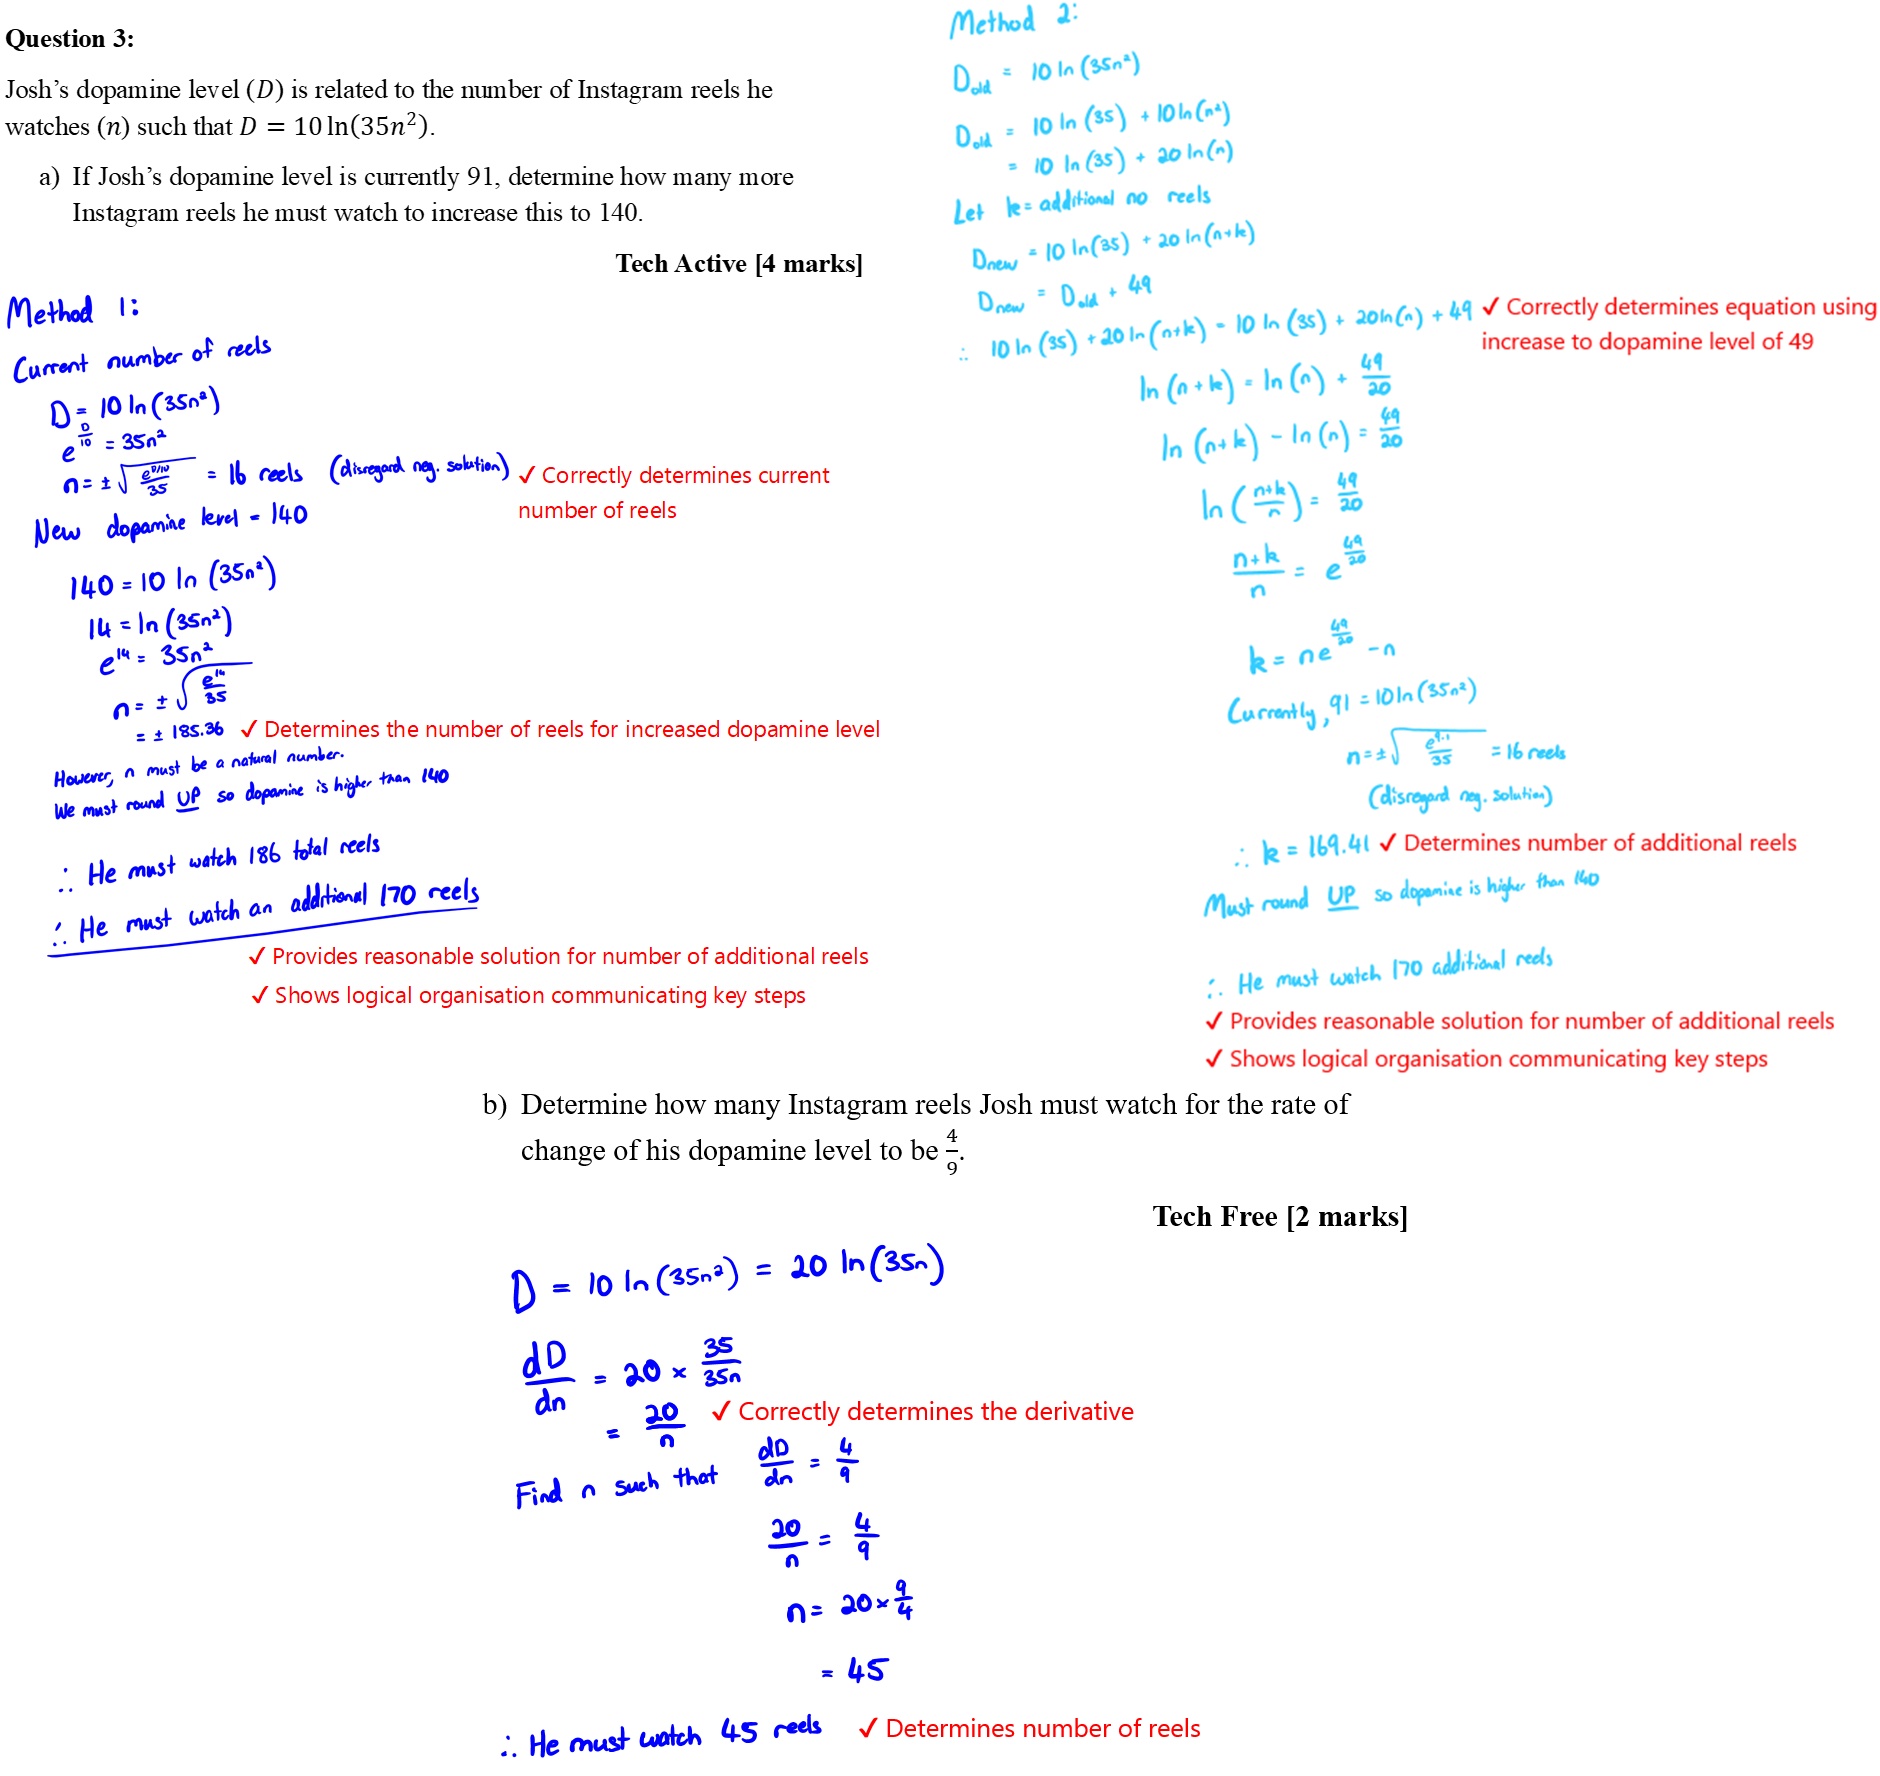 Question 3:
Josh's dopamine level (D) is related to the number of Instagram reels he
watches (n) such that D = 10 ln(35n²).
a) If Josh's dopamine level is currently 91, determine how many more
Instagram reels he must watch to increase this to 140.
Tech Active [4 marks]
Method 1:
Current number of reels
D = 10 ln (35n²)
e^(D/10) = 35n²
n = ± √(e^(D/10)/35) = 16 reels (disregard neg. solution) ✓ Correctly determines current
number of reels
New dopamine level = 140
140 = 10 ln (35n²)
14 = ln (35n²)
e^14 = 35n²
n = ± √(e^14/35)
= ± 185.36 ✓ Determines the number of reels for increased dopamine level
However, n must be a natural number.
We must round UP so dopamine is higher than 140
∴ He must watch 186 total reels
∴ He must watch an additional 170 reels
✓ Provides reasonable solution for number of additional reels
✓ Shows logical organisation communicating key steps
Method 2:
D_old = 10 ln (35n²)
D_old = 10 ln (35) + 10 ln (n²)
= 10 ln (35) + 20 ln (n)
Let k = additional no reels
D_new = 10 ln (35) + 20 ln (n+k)
D_new = D_old + 49
∴ 10 ln (35) + 20 ln (n+k) = 10 ln (35) + 20 ln (n) + 49 ✓ Correctly determines equation using
increase to dopamine level of 49
ln (n+k) = ln (n) + 49/20
ln (n+k) - ln (n) = 49/20
ln ((n+k)/n) = 49/20
(n+k)/n = e^(49/20)
k = ne^(49/20) - n
Currently, 91 = 10 ln (35n²)
n = ± √(e^9.1/35) = 16 reels
(disregard neg. solution)
∴ k = 169.41 ✓ Determines number of additional reels
Must round UP so dopamine is higher than 140
∴ He must watch 170 additional reels
✓ Provides reasonable solution for number of additional reels
✓ Shows logical organisation communicating key steps
b) Determine how many Instagram reels Josh must watch for the rate of
change of his dopamine level to be 4/9.
Tech Free [2 marks]
D = 10 ln (35n²) = 20 ln (35n)
dD/dn = 20 × 35/35n
= 20/n ✓ Correctly determines the derivative
Find n such that dD/dn = 4/9
20/n = 4/9
n = 20 × 9/4
= 45
∴ He must watch 45 reels ✓ Determines number of reels